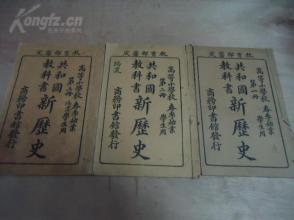 华夏收藏
教育部審定
高等小學校 春季始業
第一冊 學生用
共和國
教科書
新歷史
商務印書館發行
教育部審定
高等小學校 春季始業
第二冊 學生用
共和國
教科書
新歷史
商務印書館發行
教育部審定
高等小學校 春季始業
學生用
共和國
教科書
新歷史
商務印書館發行